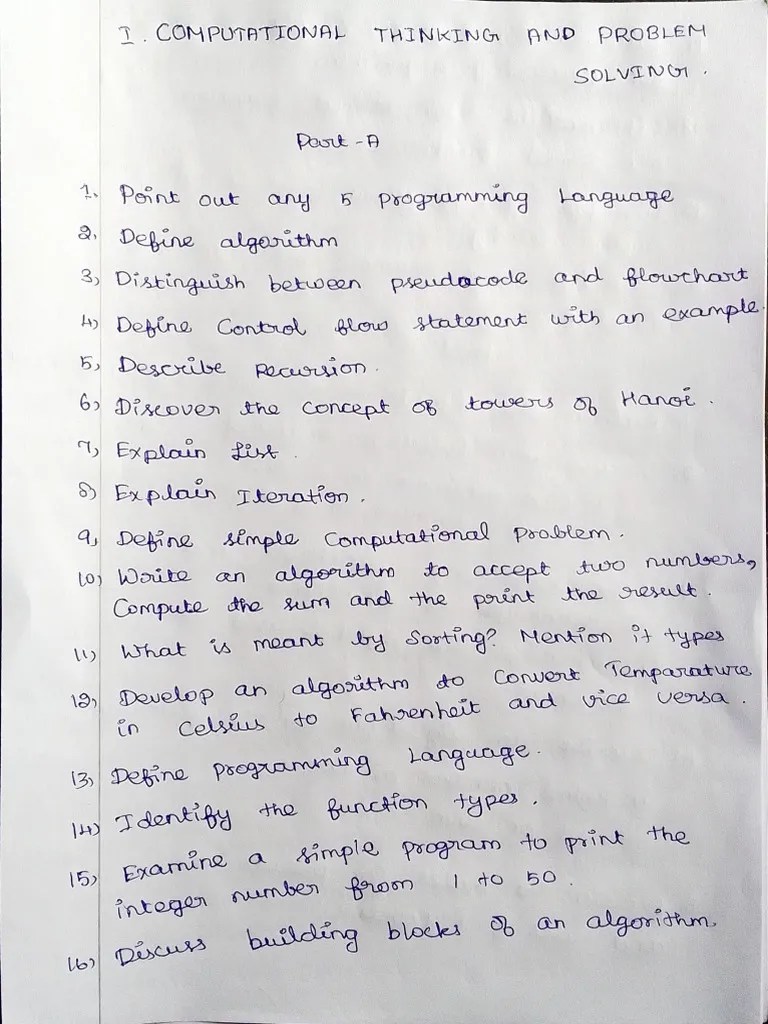 I. COMPUTATIONAL THINKING AND PROBLEM
SOLVING.
Part -A
1. Point out any 5 programming Language
2, Define algorithm
3, Distinguish between pseudocode and flowchart
4, Define Control flow statement with an example.
5, Describe Recursion.
6, Discover the concept of towers of Hanoi.
7, Explain List.
8) Explain Iteration.
9, Define simple Computational problem.
10) Write an algorithm to accept two numbers,
Compute the sum and the print the result.
11) What is meant by Sorting? Mention it types
12) Develop an algorithm to Convert Temparature
in Celsius to Fahrenheit and vice versa.
13) Define programming Language.
14) Identify the function types.
15) Examine a simple program to print the
integer number from 1 to 50.
16) Discuss building blocks of an algorithm.